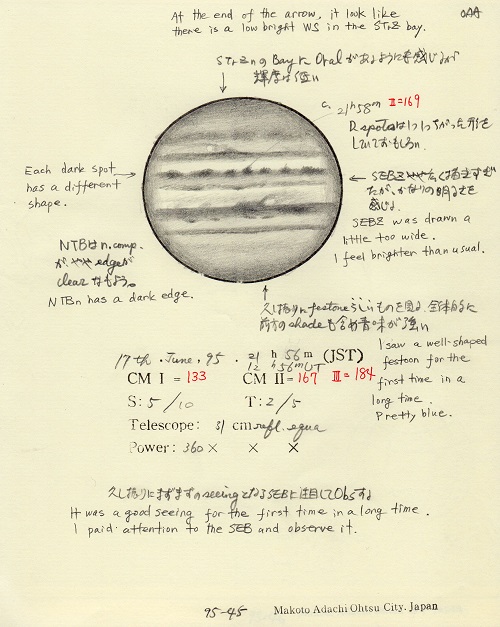 At the end of the arrow, it look like
there is a low bright WS in the STrZ bay.
OAA
STrZnのBayにOvalがあるように感じるが
輝度は低い
21h58m II=169
D.spotsは1つ1つちがった形を
していておもしろい。
Each dark spot
has a different
shape.
SEBZ
たが、かなりの明るさを
感じる
SEBZ was drawn a
little too wide.
I feel brighter than usual.
NTBはn.comp.
がややedgeが
clear
NTBn has a dark edge.
久し振りにfestoonらしいものを見る。全体的に
前方のshadeも含め青味が強い
I saw a well-shaped
festoon for the
first time in a
long time.
Pretty blue.
17th. June, 95. 21 h 56 m (JST)
12 h 56m UT
CM I = 133 CM II= 167 III= 184
S: 5/10 T: 2/5
Telescope: 31 cm refl. equa
Power: 360 × × ×
久し振りにまずまずのseeingとなるSEBに注目してObsする
It was a good seeing for the first time in a long time.
I paid attention to the SEB and observe it.
95-45 Makoto Adachi Ohtsu City. Japan